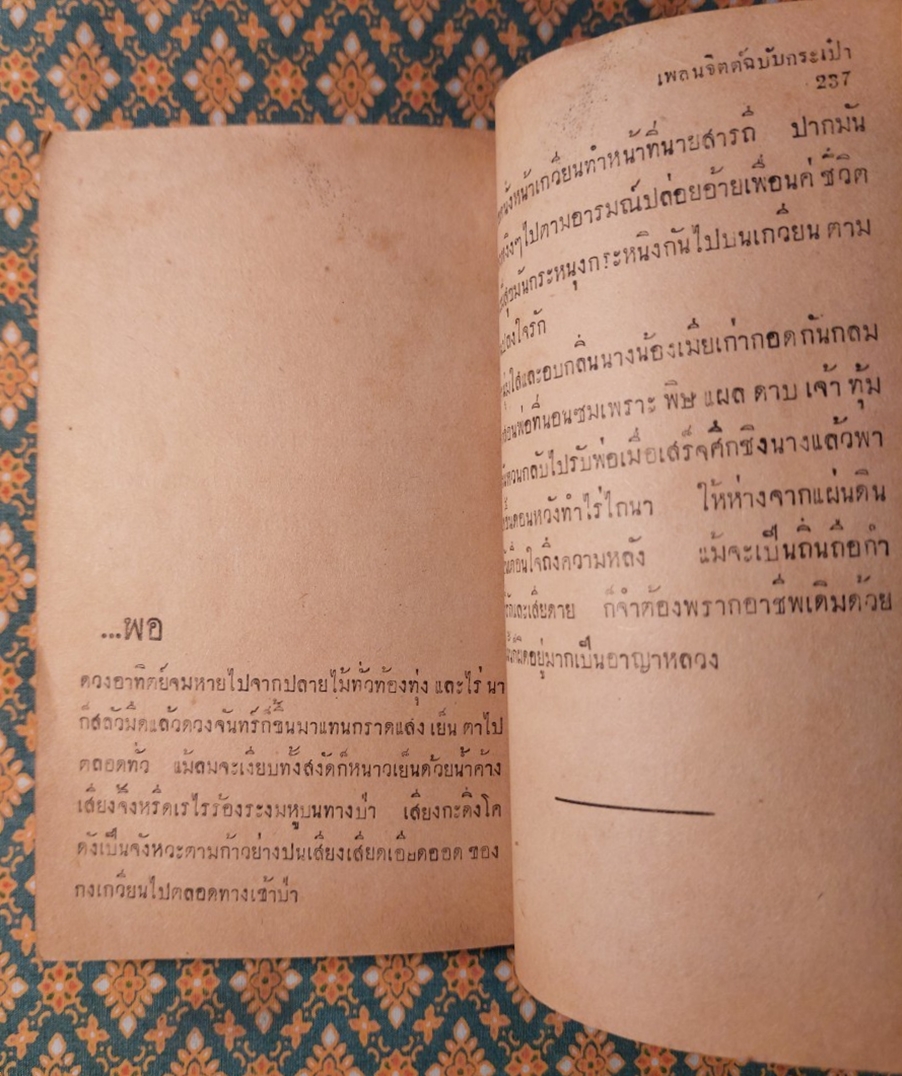 ...พอ
ดวงอาทิตย์จมหายไปจากปลายไม้ทั่วท้องทุ่ง และไร่ นา
ก็สลัวมืดแล้วดวงจันทร์ก็ขึ้นมาแทนกราดแสง เย็น ตาไป
ตลอดทั่ว แม้ลมจะเงียบทั้งสงัดก็หนาวเย็นด้วยน้ำค้าง
เสียงจิ้งหรีดเรไรร้องระงมหูบนทางป่า เสียงกะดิ่งโค
ดังเป็นจังหวะตามก้าวย่างปนเสียงเสียดเอียดออด ของ
กงเกวียนไปตลอดทางเข้าป่า
เพลนจิตต์ฉบับกระเป๋า
237
หน้าเกวียนทำหน้าที่นายสารถี ปากมัน
ไปตามอารมณ์ปล่อยอ้ายเพื่อนคู่ ชีวิต
มันกระหนุงกระหนิงกันไปบนเกวียน ตาม
ใจรัก
และอบกลิ่นนางน้องเมียเก่ากอดกันกลม
พ่อที่นอนซมเพราะ พิษ แผล ดาบ เจ้า ทุ้ม
กลับไปรับพ่อเมื่อเสร็จศึกชิงนางแล้วพา
หวังทำไร่ไถนา ให้ห่างจากแผ่นดิน
ใจถึงความหลัง แม้จะเป็นถิ่นถือกำ
และเสียดาย ก็จำต้องพรากอาชีพเดิมด้วย
อยู่มากเป็นอาญาหลวง